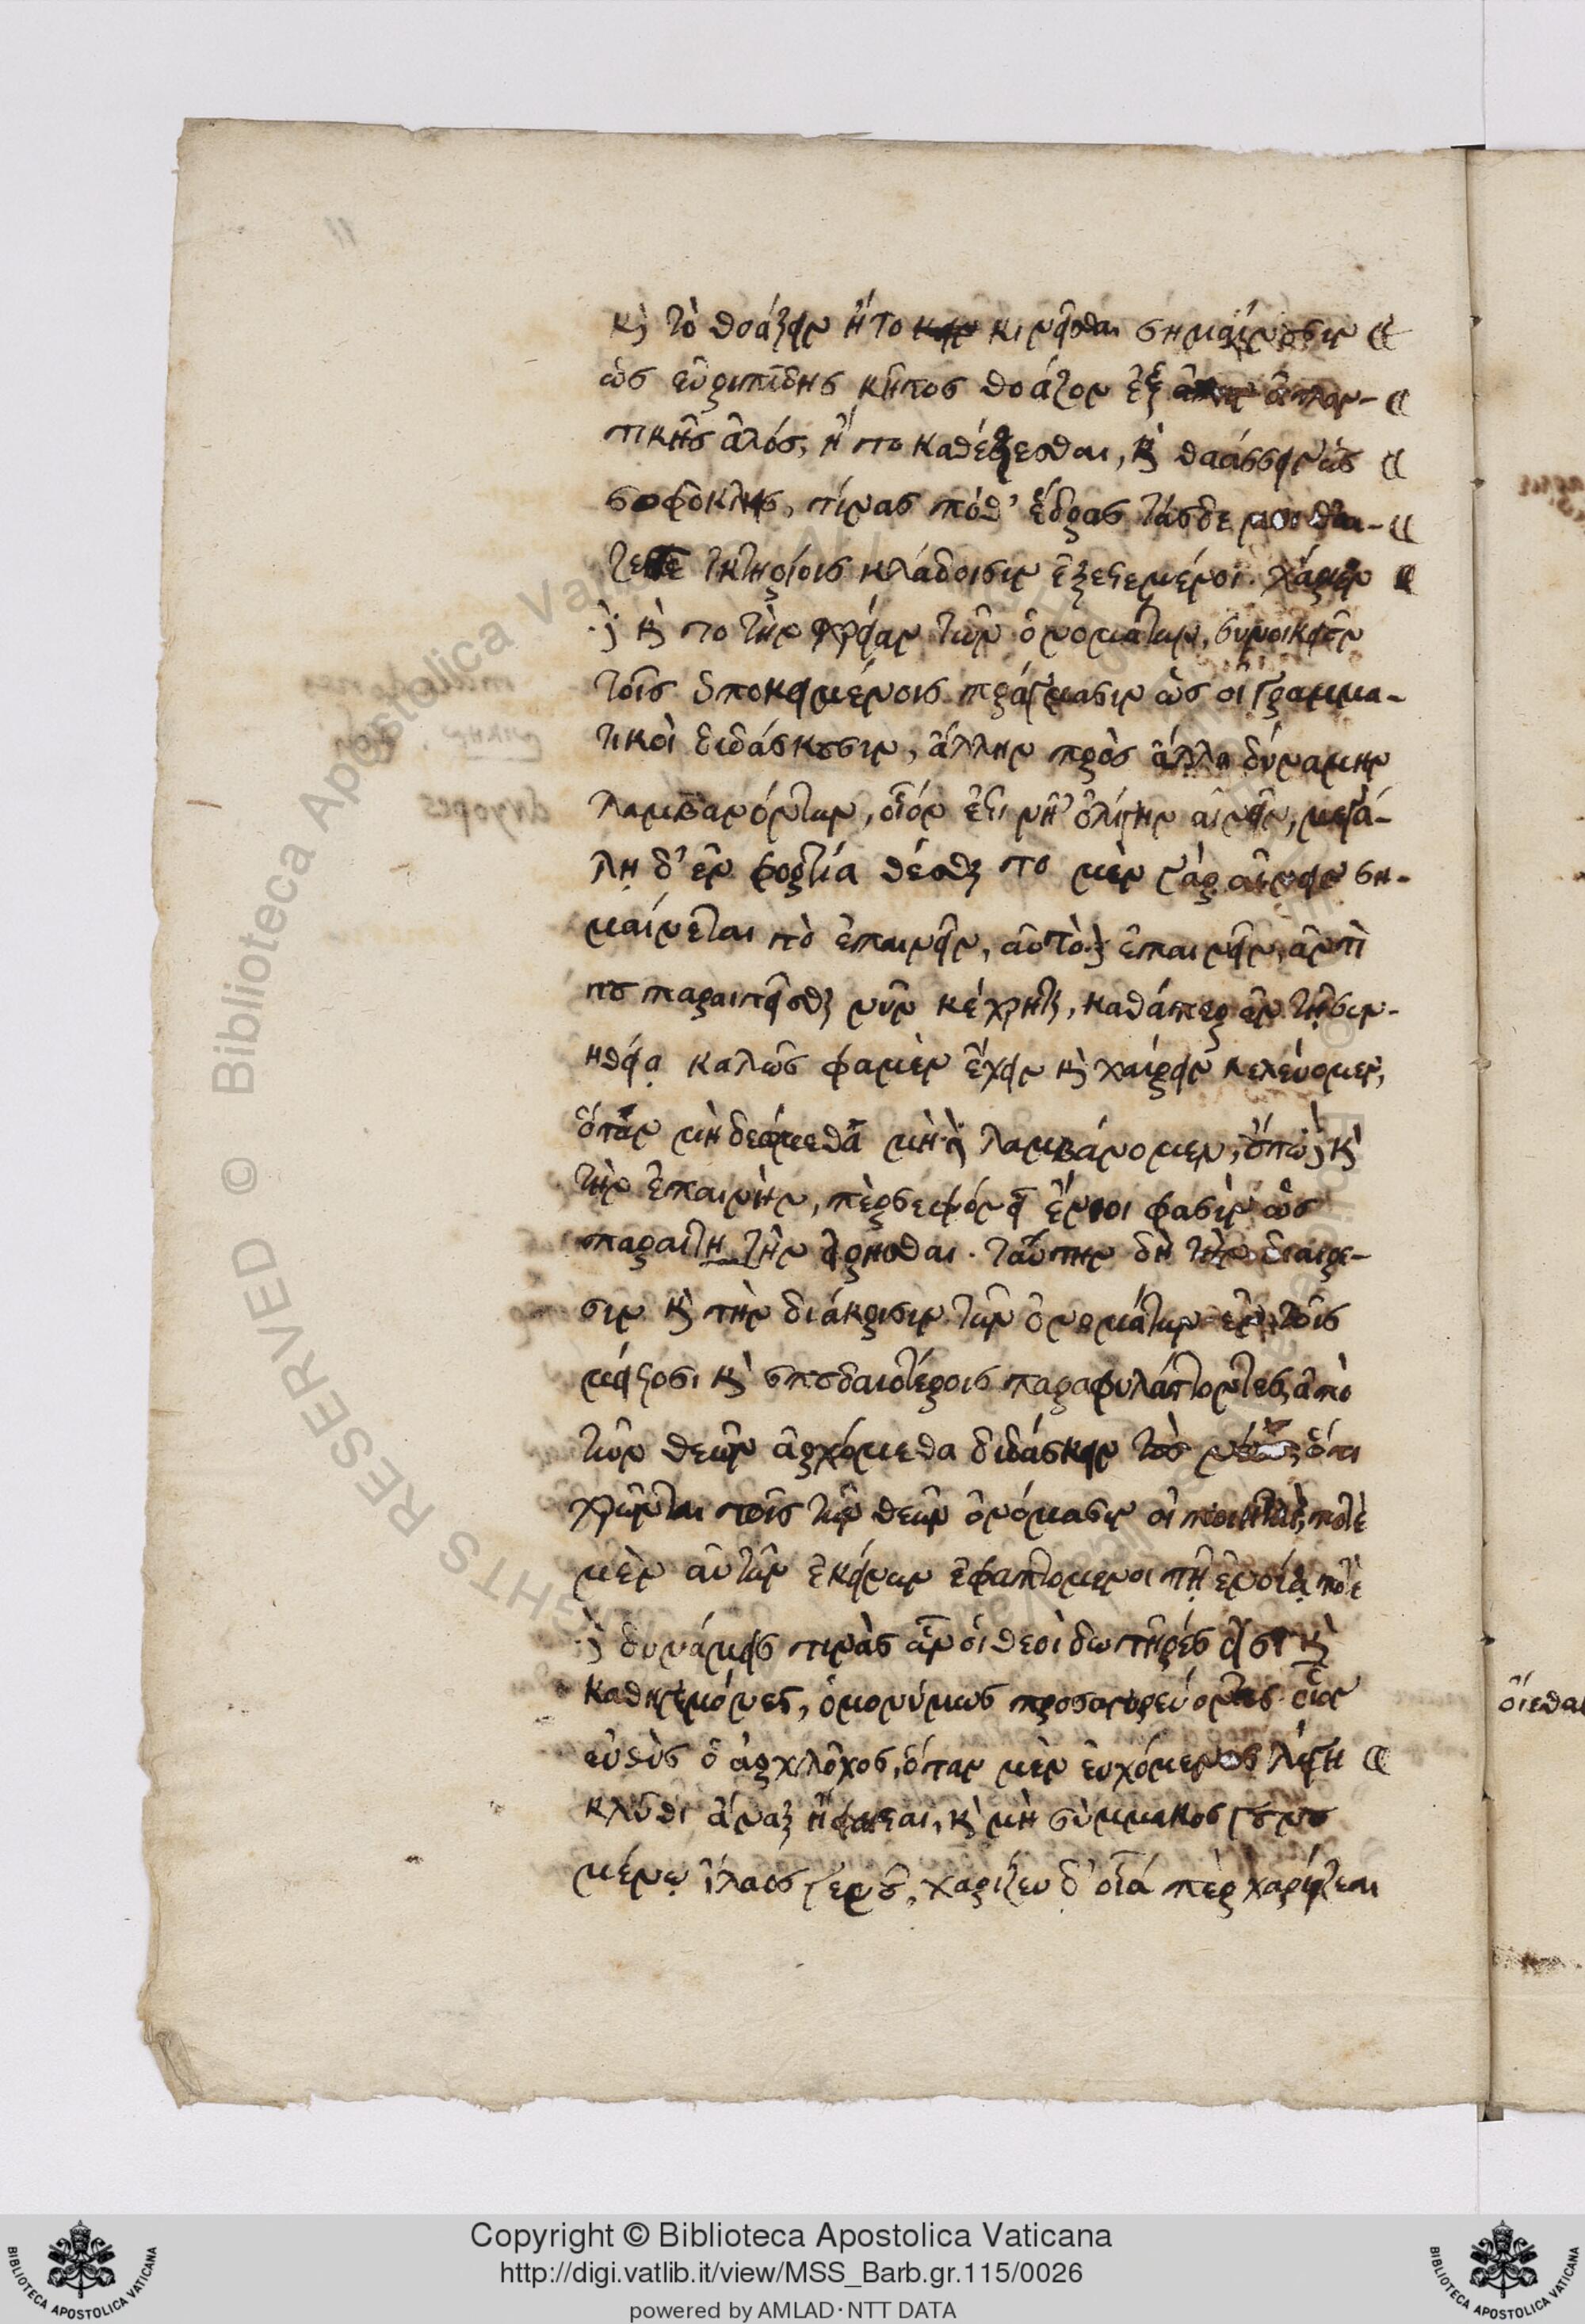 κὶ τὸ θοάζειν ἢ το κινεῖσθαι σημαίνουσιν
ὡς εὐριπίδης κῆτος θοάζον ἐξ ἀτλαν-
τικῆς ἁλός, ἢ το καθέζεσθαι, κὶ θαάσσειν ὡς
σοφοκλῆς, τίνας πόθ' ἕδρας τάσδε μοι θοα-
ζετε ἱκτηρίοις κλάδοισιν ἐξεστεμμένοι. χάριεν
δὲ κὶ το τὴν χρείαν τῶν ὀνομάτων, συνοικειοῦν
τοῖς ὑποκειμένοις πράγμασιν ὡς οἱ γραμμα-
τικοὶ διδάσκουσιν, ἄλλην πρὸς ἄλλα δύναμην
λαμβανόντων, οἷόν ἐστι νῆ' ὀλίγην αἰνεῖν, μεγά-
λῃ δ' ἐν φορτία θέσθαι το μὲν γὰρ αἰνεῖν ση-
μαίνεται τὸ ἐπαινεῖν, αὐτὸ δὲ ἐπαινεῖν, ἀντὶ
του παραιτεῖσθαι νῦν κέχρηται, καθάπερ ἐν τῇ συν-
ηθείᾳ καλῶς φαμὲν ἔχειν κὶ χαίρειν κελεύομεν,
ὅταν μὴ δεώμεθα μὴ δὲ λαμβάνομεν, οὕτω δὲ κὶ
τὴν ἐπαινὴν, περσεφόνει ἔνιοι φασὶν ὡς
παραιτητὴν εἰρησθαι. ταύτην δὴ τὴν διαιρε-
σιν κὶ τὴν διάκρισιν τῶν ὀνομάτων ἐν τοῖς
μείζοσι κὶ σπουδαιοτέροις παραφυλάττοντες, ἀπὸ
τῶν θεῶν ἀρχόμεθα διδάσκειν τοὺς νέους, ὅτι
χρῶνται τοῖς τῶν θεῶν ὀνόμασιν οἱ ποιηταὶ, ποτὲ
μὲν αὐτῶν ἐκείνων ἐφαπτομενοι τῇ ἐννοίᾳ ποτὲ
δὲ δυνάμεις τινὰς ὧν οἱ θεοὶ δωτῆρές εἰσι κὶ
καθηγεμόνες, ὁμονύμως προσαγορεύοντες οἷον
εὐθὺς ὁ ἀρχιλόχος, ὅταν μὲν εὐχόμενος λέγῃ
κλῦθι ἄναξ ἥφαισται, κὶ μὴ σύμμακος γουνου
μένῳ ἵλαος γενοῦ, χαρίζευ δ' οἷά περ χαρίζεαι
οἴεσθαι
Copyright © Biblioteca Apostolica Vaticana
http://digi.vatlib.it/view/MSS_Barb.gr.115/0026
powered by AMLAD·NTT DATA